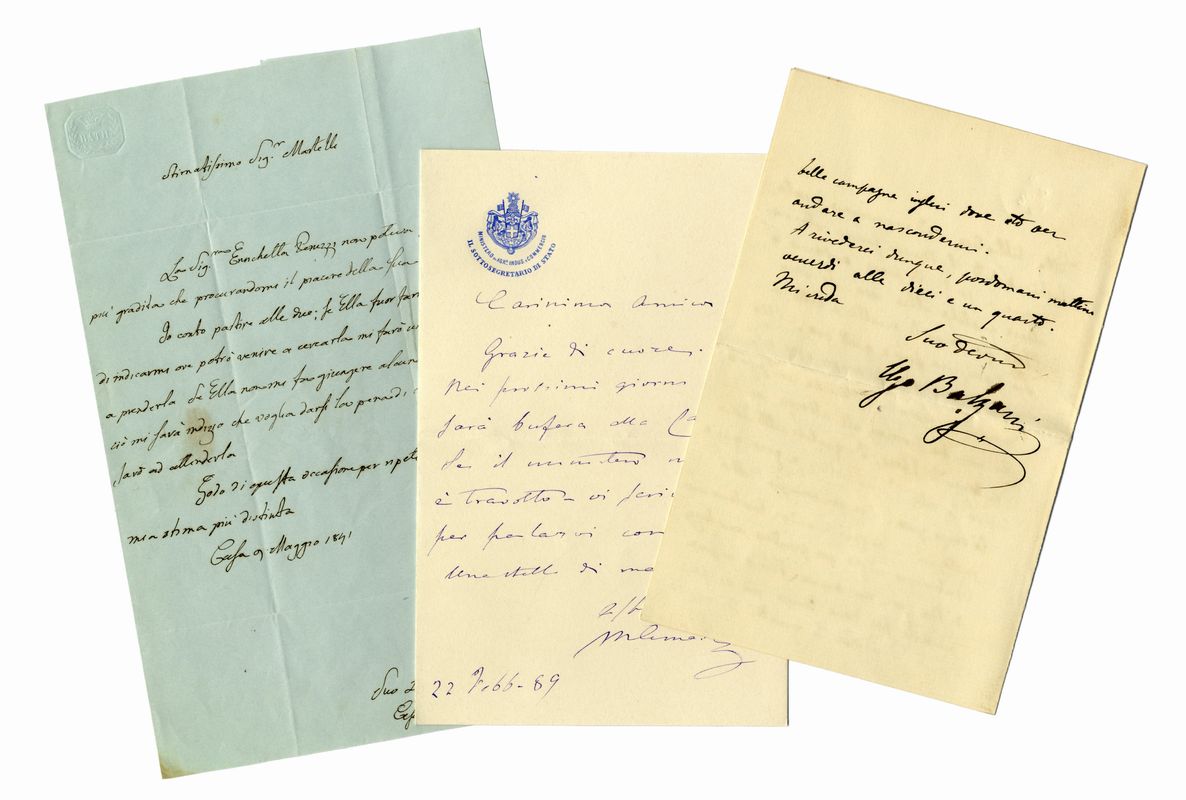 BATH
Stimatissimo Sig.r Martelli
La Sig.ma Enrichetta non poteva
più gradita che procurandomi il piacere della sua
Io conto partire alle due; se Ella fuor
di indicarmi ove potrò venire a cercarla mi farò
a prenderla se Ella non mi fa giungere alcun
ciò mi sarà indizio che voglia darsi la pena di
sarò ad attenderla
Godo di questa occasione per
mia stima più distinta
Casa 9 Maggio 1841
Suo
MINISTERO DI AGR.ª INDUS. E COMMERCIO
IL SOTTOSEGRETARIO DI STATO
Carissimo Amico
Grazie di cuore.
Nei prossimi giorni
sarà bufera alla
Se il ministero
è travolto vi
per parlarvi con
di
22 Febb- 89
belle campagne inglesi dove sto per
andare a nascondermi.
A rivederci dunque, posdomani mattina
venerdì alle dieci e un quarto.
Mi creda
Suo devmo
Ugo Balzani